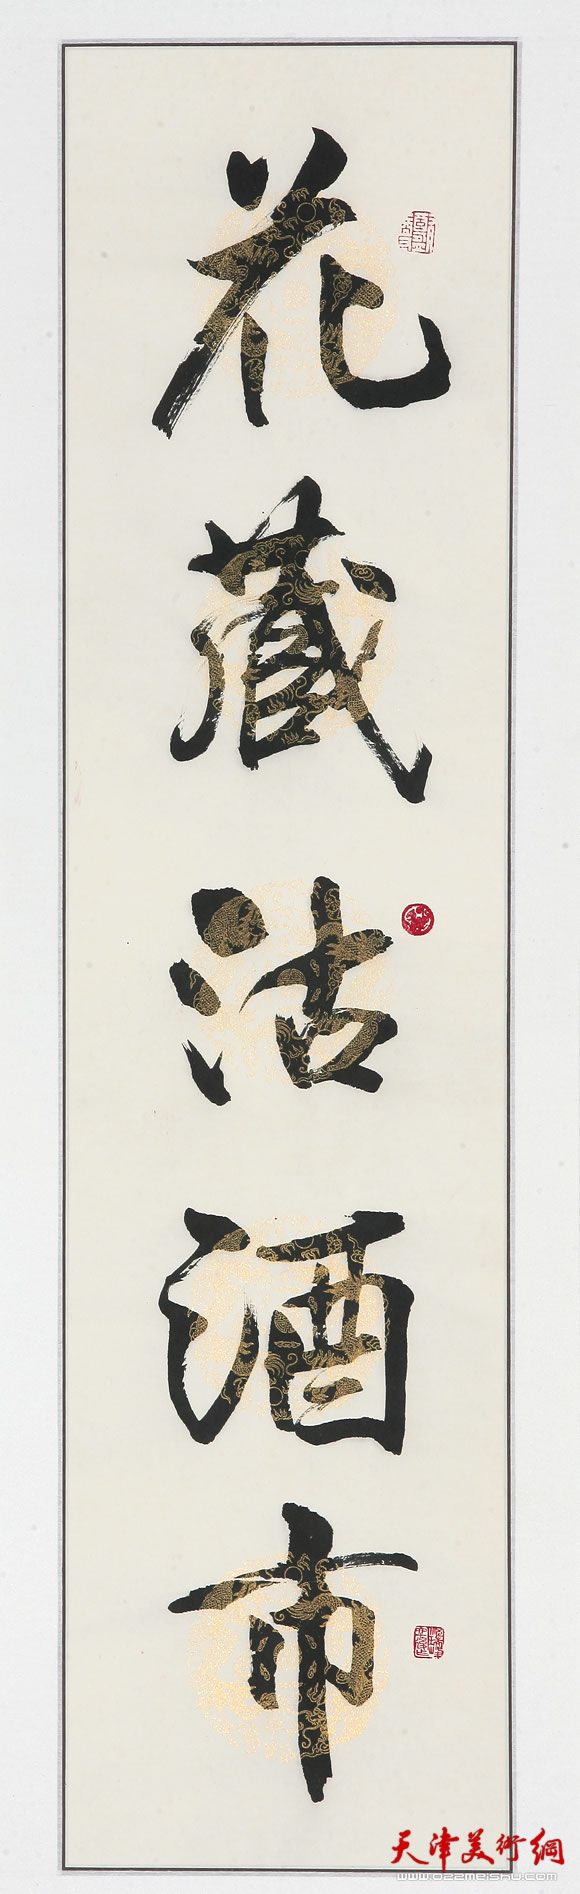 花藏沽酒市
天津美術網
www.022meishu.com